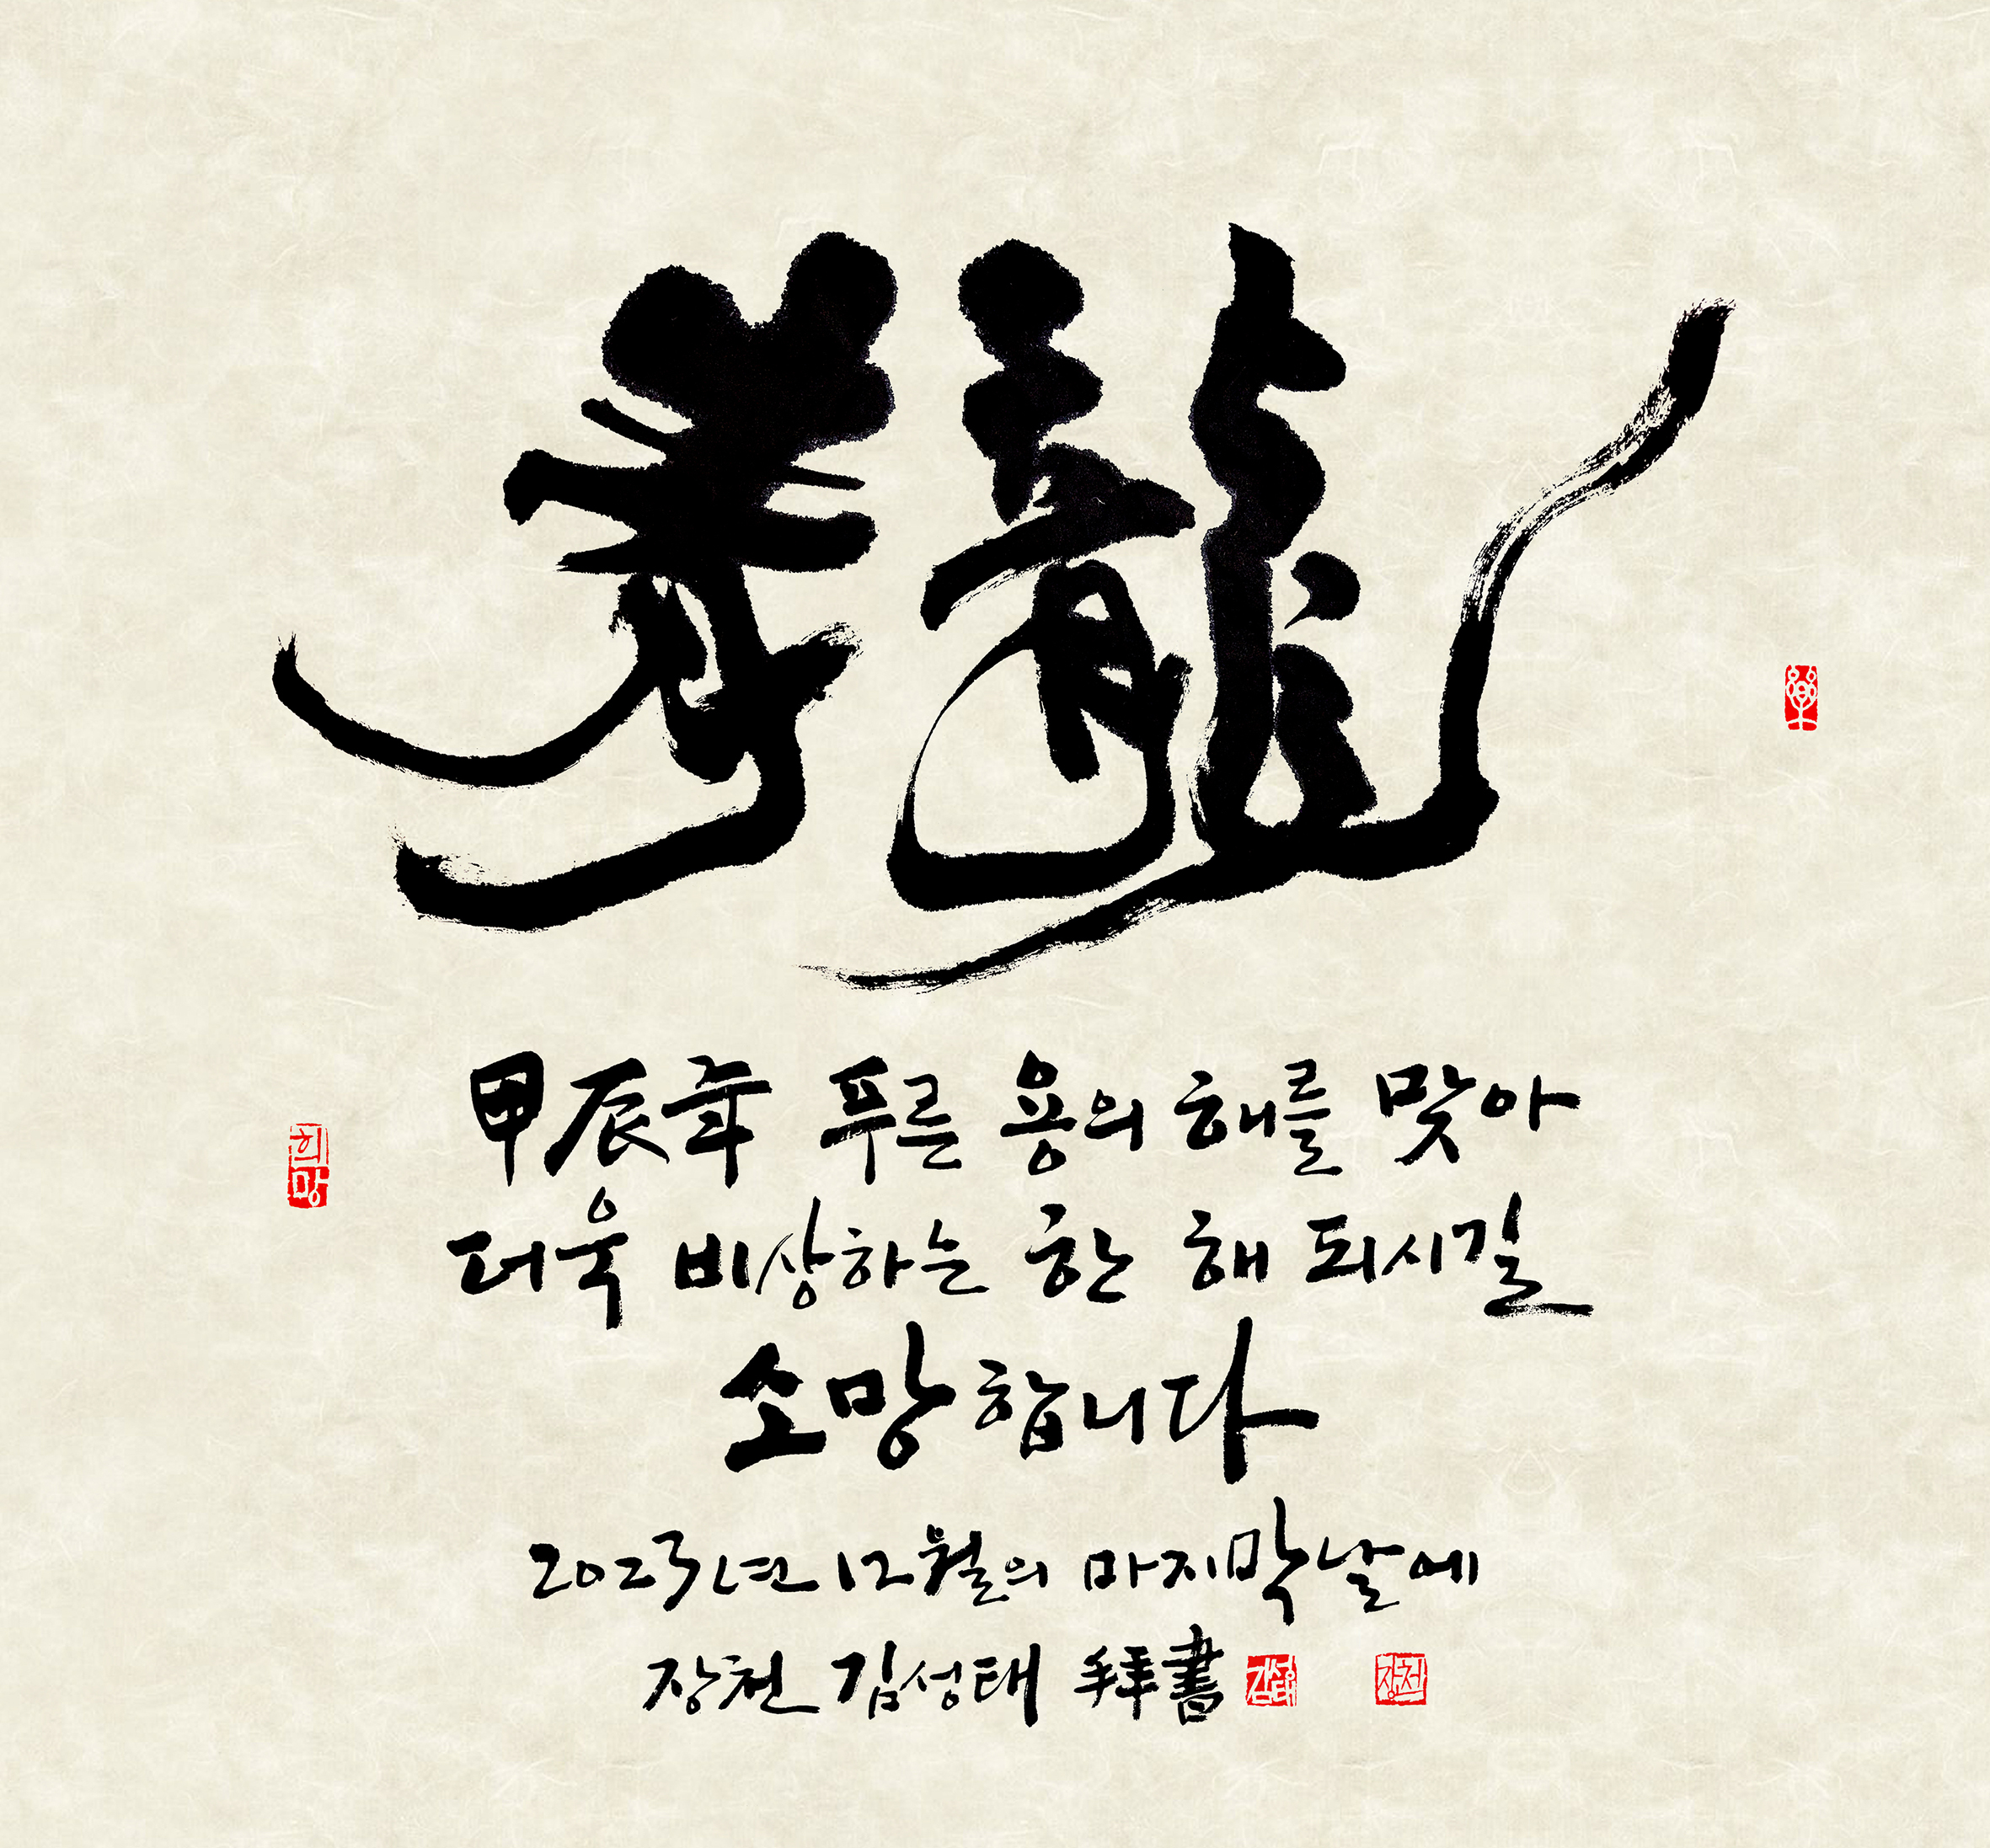 靑龍
甲辰年 푸른 용의 해를 맞아
더욱 비상하는 한 해 되시길
소망합니다
2023년 12월의 마지막날에
장천 김성태 拜書
희망
김성태
장천